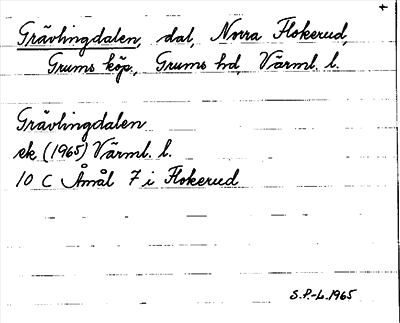 Grävlingdalen, dal, Norra Flokerud,
Grums köp., Grums hd, Värml. l.
Grävlingdalen
ek (1965) Värml. l.
10 C Åmål 7 i Flokerud
S.P.-L. 1965